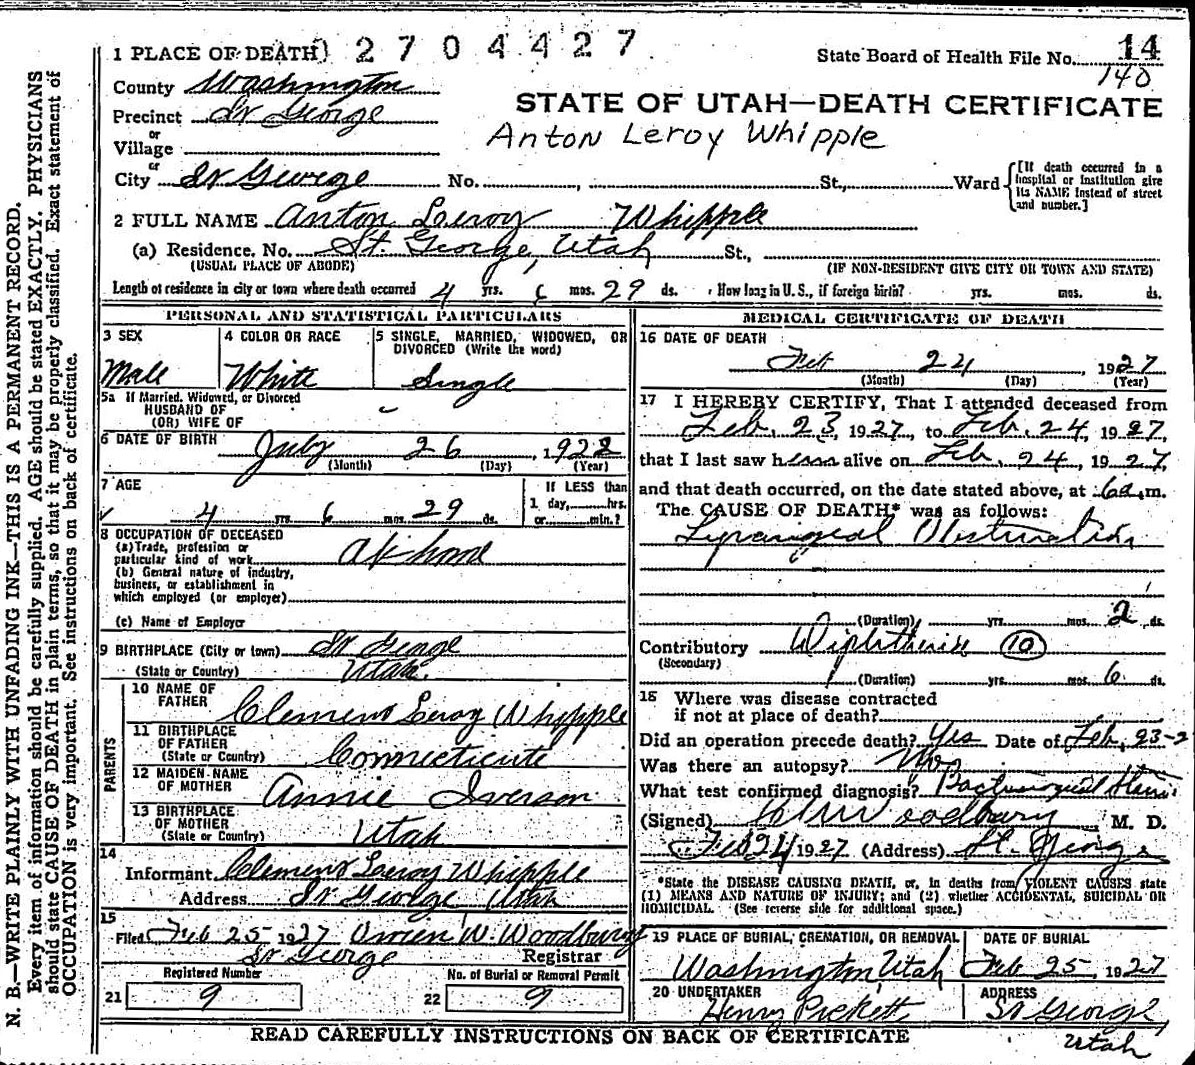 1 PLACE OF DEATH) 2 7 0 4 4 2 7
State Board of Health File No. 14
140
County Washington
Precinct St George
or
Village
or
City St George No. , St., Ward
[If death occurred in a hospital or institution give its NAME instead of street and number.]
STATE OF UTAH—DEATH CERTIFICATE
Anton Leroy Whipple
2 FULL NAME Anton Leroy Whipple
(a) Residence. No. St. George, Utah St.,
(USUAL PLACE OF ABODE) (IF NON-RESIDENT GIVE CITY OR TOWN AND STATE)
Length of residence in city or town where death occurred 4 yrs. 6 mos. 29 ds. How long in U. S., if foreign birth? yrs. mos. ds.
PERSONAL AND STATISTICAL PARTICULARS
3 SEX
Male
4 COLOR OR RACE
White
5 SINGLE, MARRIED, WIDOWED, OR DIVORCED (Write the word)
Single
5a If Married, Widowed, or Divorced
HUSBAND OF
(OR) WIFE OF
6 DATE OF BIRTH July 26 1922
(Month) (Day) (Year)
7 AGE
4 yrs. 6 mos. 29 ds.
If LESS than
1 day, hrs.
or min.?
8 OCCUPATION OF DECEASED
(a) Trade, profession or
particular kind of work At home
(b) General nature of industry,
business, or establishment in
which employed (or employer)
(c) Name of Employer
9 BIRTHPLACE (City or town) St George
(State or Country) Utah.
PARENTS
10 NAME OF
FATHER Clement Leroy Whipple
11 BIRTHPLACE
OF FATHER
(State or Country) Connecticute
12 MAIDEN NAME
OF MOTHER Annie Iverson
13 BIRTHPLACE
OF MOTHER
(State or Country) Utah
14
Informant Clement Leroy Whipple
Address St George, Utah
15
Filed Feb 25 1927 W. Woodbury
St George Registrar
Registered Number
21 9
No. of Burial or Removal Permit
22 9
MEDICAL CERTIFICATE OF DEATH
16 DATE OF DEATH
Feb 24 1927
(Month) (Day) (Year)
17 I HEREBY CERTIFY, That I attended deceased from
Feb. 23, 1927, to Feb. 24, 1927,
that I last saw him alive on Feb. 24, 1927,
and that death occurred, on the date stated above, at 6a.m.
The CAUSE OF DEATH* was as follows:
Obstruction
(Duration) yrs. mos. 2 ds.
Contributory Diphtheria 10
(Secondary)
(Duration) yrs. mos. 6 ds.
18 Where was disease contracted
if not at place of death?
Did an operation precede death? Yes Date of Feb. 23-2
Was there an autopsy? No
What test confirmed diagnosis?
(Signed) Woodbury M. D.
Feb 24 1927 (Address) St. George
*State the DISEASE CAUSING DEATH, or, in deaths from VIOLENT CAUSES state
(1) MEANS AND NATURE OF INJURY; and (2) whether ACCIDENTAL, SUICIDAL OR
HOMICIDAL. (See reverse side for additional space.)
19 PLACE OF BURIAL, CREMATION, OR REMOVAL
Washington, Utah
DATE OF BURIAL
Feb 25, 1927
20 UNDERTAKER
Henry Pickett
ADDRESS
St George,
Utah
READ CAREFULLY INSTRUCTIONS ON BACK OF CERTIFICATE
N. B.—WRITE PLAINLY WITH UNFADING INK—THIS IS A PERMANENT RECORD.
Every item of information should be carefully supplied. AGE should be stated EXACTLY. PHYSICIANS
should state CAUSE OF DEATH in plain terms, so that it may be properly classified. Exact statement of
OCCUPATION is very important. See instructions on back of certificate.